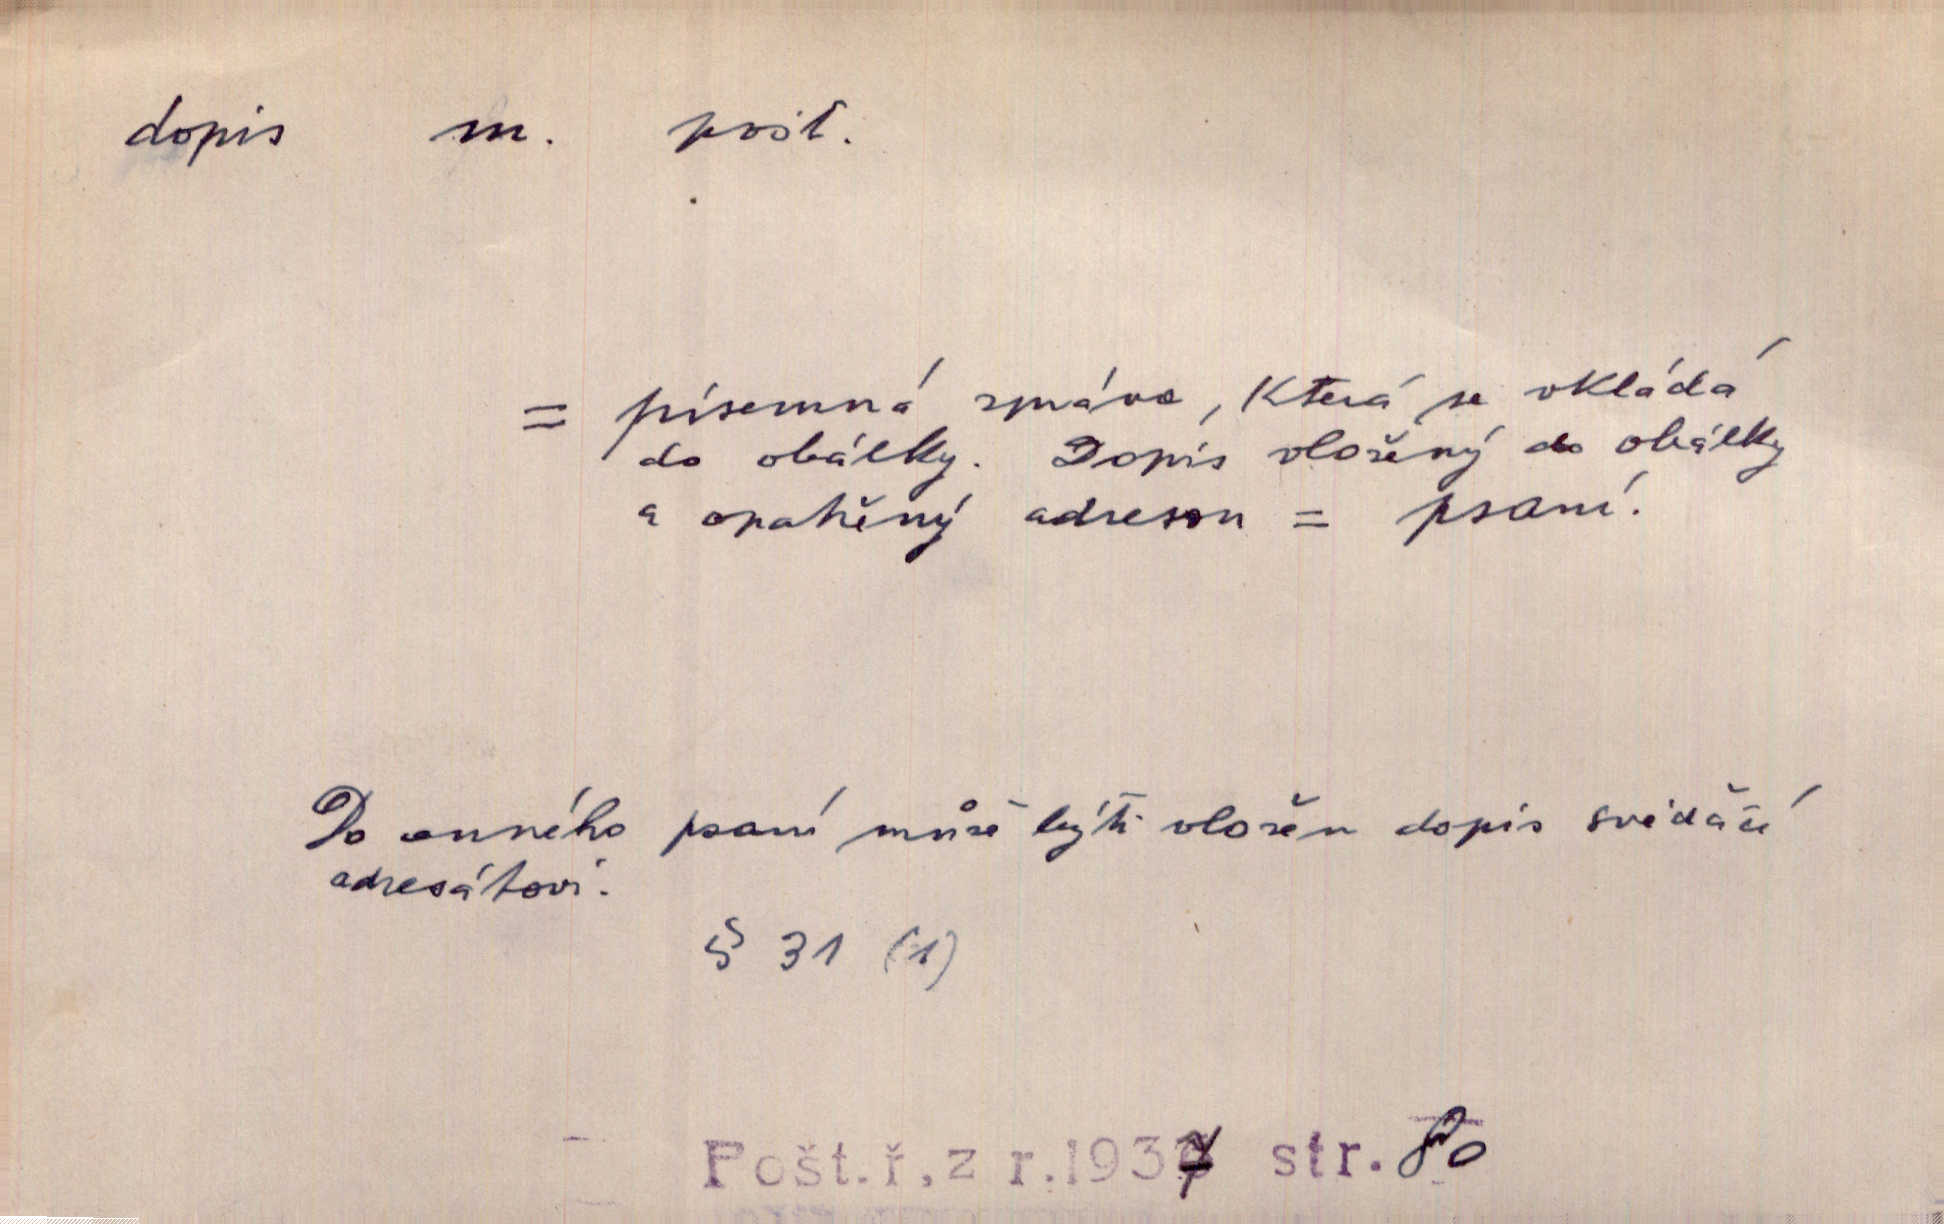 dopis m. pošt.
= písemná zpráva, která se vkládá
do obálky. Dopis vložený do obálky
a opatřený adresou = psaní.
Do cenného psaní může býti vložen dopis svědčící
adresátovi.
§ 31 (1)
Pošt.ř.z r.1937 str. 80